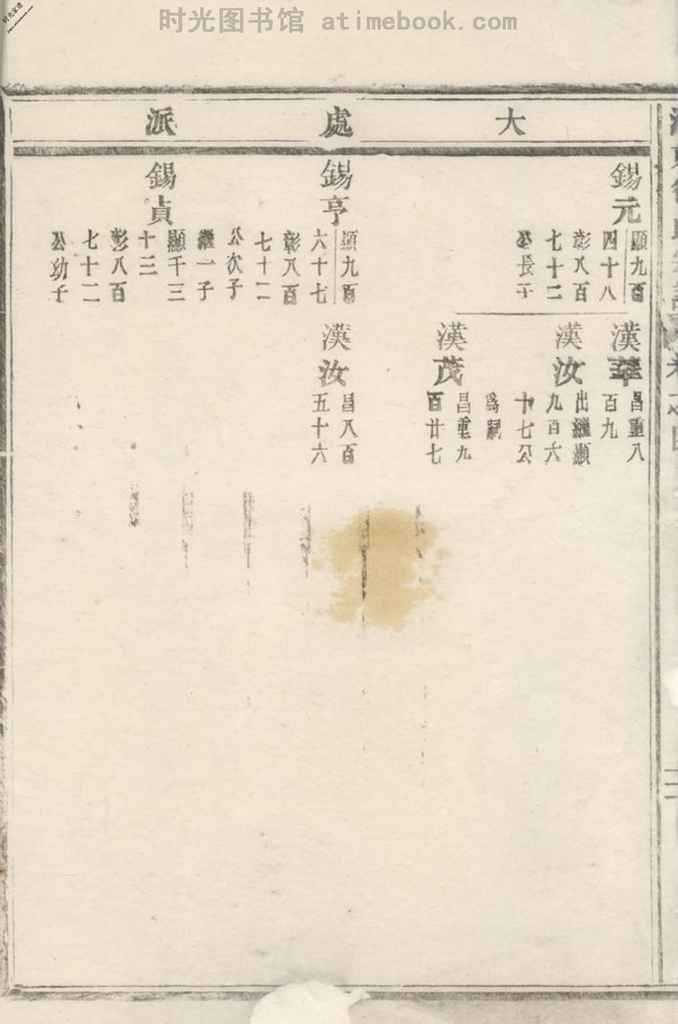 时光图书馆 atimebook.com
大處派
錫元
顯九百
四十八
彰八百
七十二
公長子
漢華
昌重八
百九
漢汝
出繼顯
九百六
十七公
為嗣
漢茂
昌重九
百廿七
錫亨
顯九百
六十七
彰八百
七十二
公次子
繼一子
漢汝
昌八百
五十六
錫貞
顯千三
十三
彰八百
七十二
公幼子